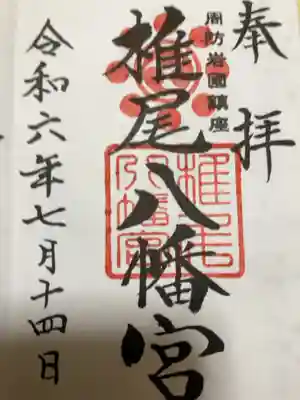 奉拝
周防岩國鎮座
椎尾八幡宮
椎尾八幡宮
令和六年七月十四日